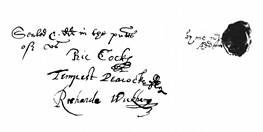 Sealed & dd in the presence
of us
Ric Cocks
Tempest Peacock
Richard Wickham
by me